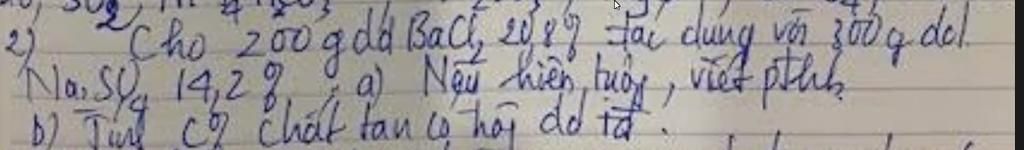 2) Cho 200g dd BaCl2 20,8% tác dụng với 300g dd
Na2SO4 14,2%. a) Nêu hiện tượng, viết pthh
b) Tính C% chất tan có